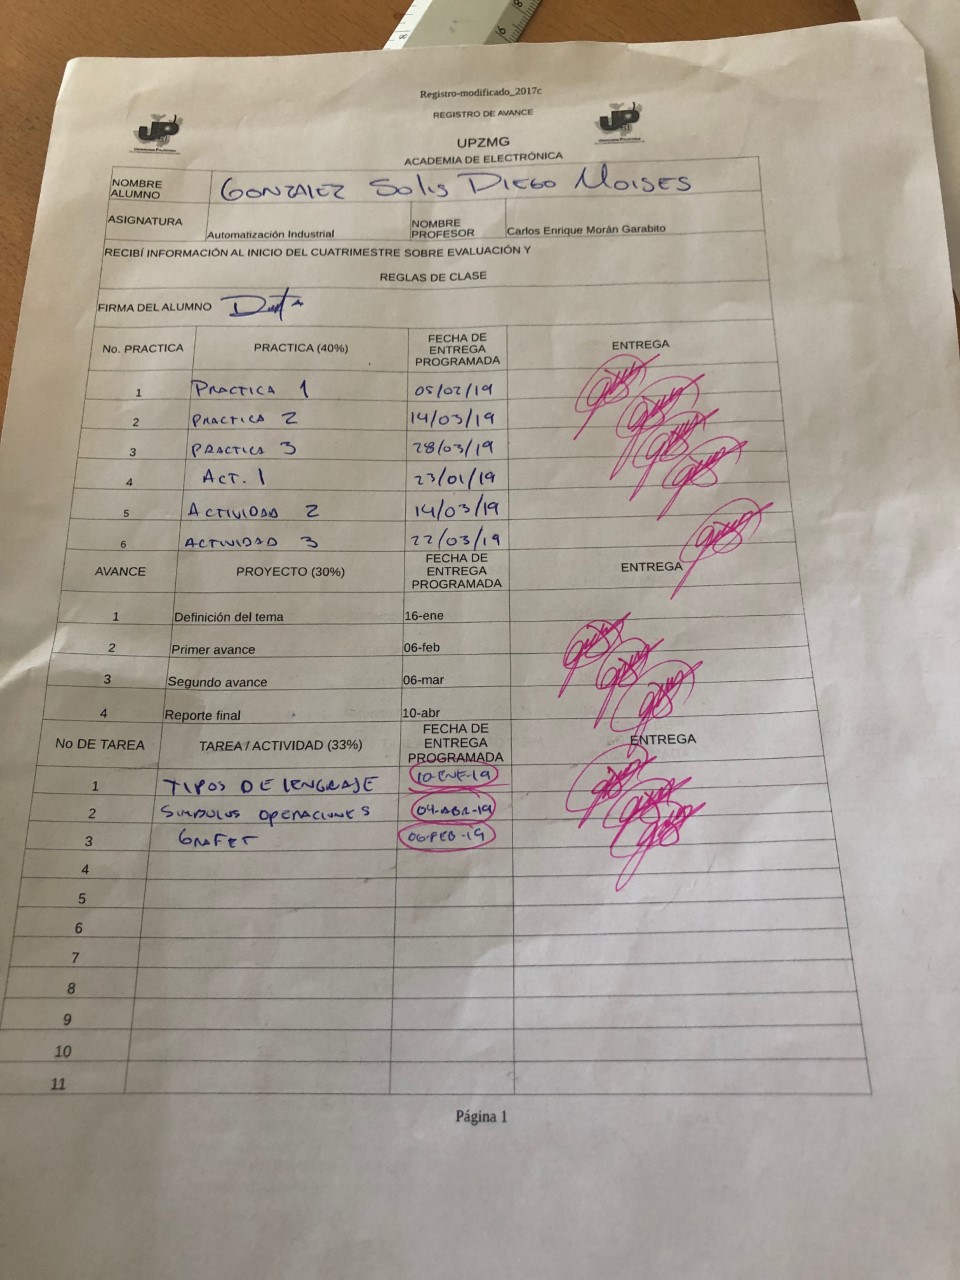 Registro-modificado_2017c
REGISTRO DE AVANCE
UPZMG
ACADEMIA DE ELECTRÓNICA
NOMBRE ALUMNO GONZALEZ SOLIS DIEGO MOISES
ASIGNATURA Automatización Industrial NOMBRE PROFESOR Carlos Enrique Morán Garabito
RECIBÍ INFORMACIÓN AL INICIO DEL CUATRIMESTRE SOBRE EVALUACIÓN Y
REGLAS DE CLASE
FIRMA DEL ALUMNO
No. PRACTICA PRACTICA (40%) FECHA DE ENTREGA PROGRAMADA ENTREGA
1 PRACTICA 1 05/02/19
2 PRACTICA 2 14/03/19
3 PRACTICA 3 28/03/19
4 ACT. 1 23/01/19
5 ACTIVIDAD 2 14/03/19
6 ACTIVIDAD 3 22/03/19
AVANCE PROYECTO (30%) FECHA DE ENTREGA PROGRAMADA ENTREGA
1 Definición del tema 16-ene
2 Primer avance 06-feb
3 Segundo avance 06-mar
4 Reporte final 10-abr
No DE TAREA TAREA / ACTIVIDAD (33%) FECHA DE ENTREGA PROGRAMADA ENTREGA
1 TIPOS DE LENGUAJE 10-ENE-19
2 SIMBOLOS OPERACIONES 04-ABR-19
3 GRAFET 06-FEB-19
4
5
6
7
8
9
10
11
Página 1